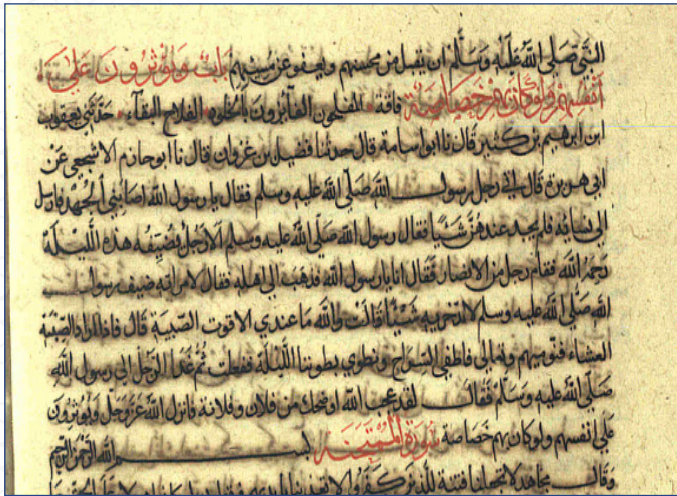 النبي صلى الله عليه وسلم ان يقبل من محسنهم ويعفو عن مسيئهم باب ويؤثرون على
انفسهم ولو كان بهم خصاصة فاقة المفلحون الفائزون بالخلود الفلاح البقاء حدثني يعقوب
ابن ابرهيم بن كثير قال نا ابو اسامة قال حدثنا فضيل بن غزوان قال نا ابو حازم الاشجعي عن
ابي هريرة قال اتى رجل رسول الله صلى الله عليه وسلم فقال يا رسول الله اصابني الجهد فارسل
الى نسائه فلم يجد عندهن شيئا فقال رسول الله صلى الله عليه وسلم الا رجل يضيفه هذه الليلة
رحمه الله فقام رجل من الانصار فقال انا يا رسول الله فذهب الى اهله فقال لامراته ضيف رسول
الله صلى الله عليه وسلم لا تدخريه شيئا قالت والله ما عندي الا قوت الصبية قال فاذا اراد الصبية
العشاء فنوميهم وتعالي فاطفئي السراج ونطوي بطوننا الليلة ففعلت ثم غدا الرجل الى رسول الله
صلى الله عليه وسلم فقال لقد عجب الله او ضحك من فلان وفلانة فانزل الله عز وجل ويؤثرون
على انفسهم ولو كان بهم خصاصة سورة الممتحنة بسم الله الرحمن الرحيم
وقال مجاهد لا تجعلنا فتنة للذين كفروا لا تعذبنا بايديهم